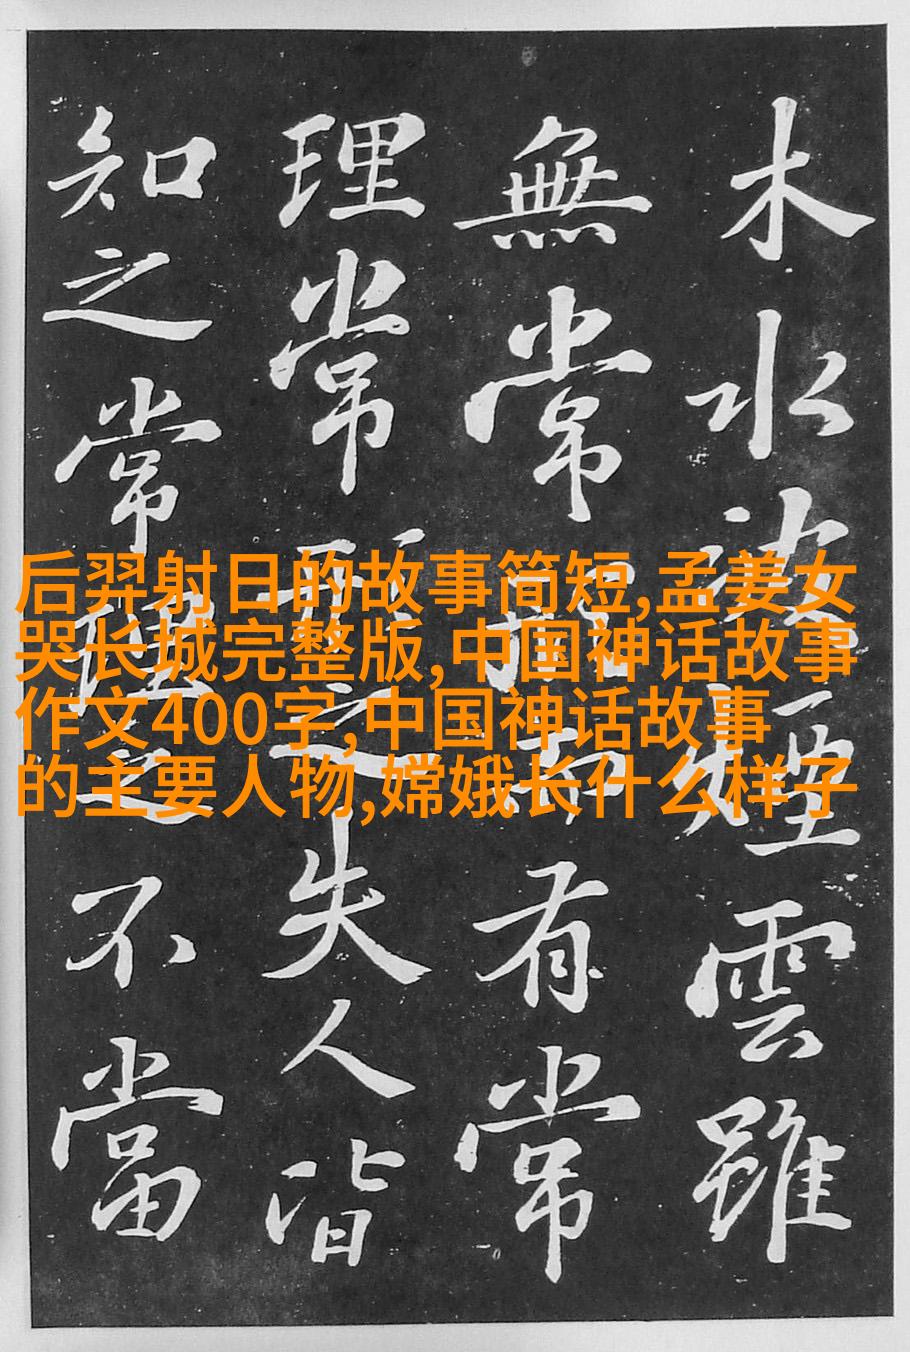 后羿射日的故事简短,孟姜女
哭长城完整版,中国神话故事
作文400字,中国神话故事
的主要人物,嫦娥长什么样子
木水波煙雲雖
無常形而有常
理常形之失人皆
知之常理之不當